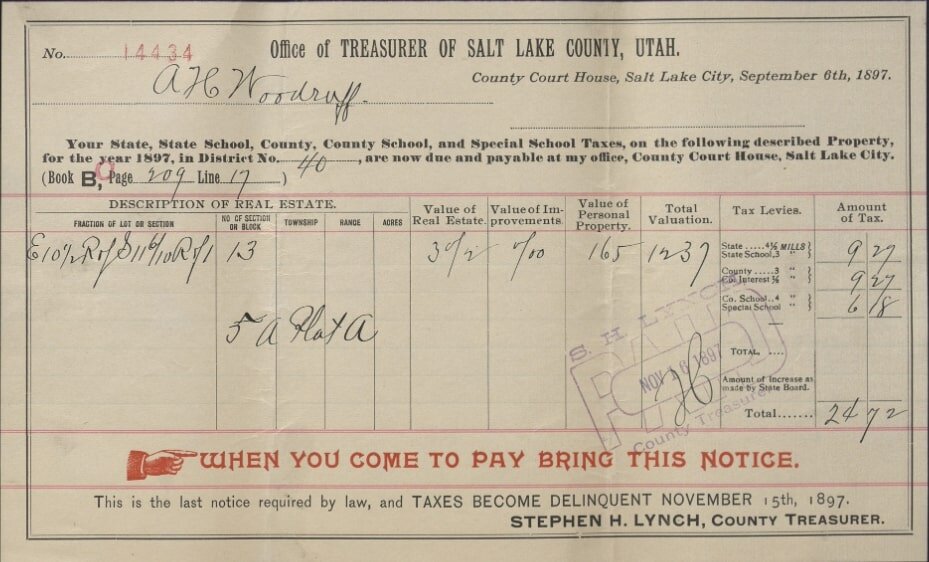 No. 14434
Office of TREASURER OF SALT LAKE COUNTY, UTAH.
A H Woodruff.
County Court House, Salt Lake City, September 6th, 1897.
Your State, State School, County, County School, and Special School Taxes, on the following described Property,
for the year 1897, in District No. 40, are now due and payable at my office, County Court House, Salt Lake City.
(Book B, Page 209 Line 17)
DESCRIPTION OF REAL ESTATE.
FRACTION OF LOT OR SECTION
NO OF SECTION OR BLOCK
TOWNSHIP
RANGE
ACRES
Value of Real Estate.
Value of Improvements.
Value of Personal Property.
Total Valuation.
Tax Levies.
Amount of Tax.
E10½R of S11 6/10 R of 1 13 165 1237
State .....4½ MILLS
State School, 3 "
9 27
County .....3 "
Co. Interest ½ "
9 27
Co. School..4 "
Special School "
6 18
5 A Plat A
S. H. LYNCH
PAID
NOV 16 1897
County Treasurer
TOTAL, ....
Amount of Increase as
made by State Board.
Total....... 24 72
WHEN YOU COME TO PAY BRING THIS NOTICE.
This is the last notice required by law, and TAXES BECOME DELINQUENT NOVEMBER 15th, 1897.
STEPHEN H. LYNCH, COUNTY TREASURER.